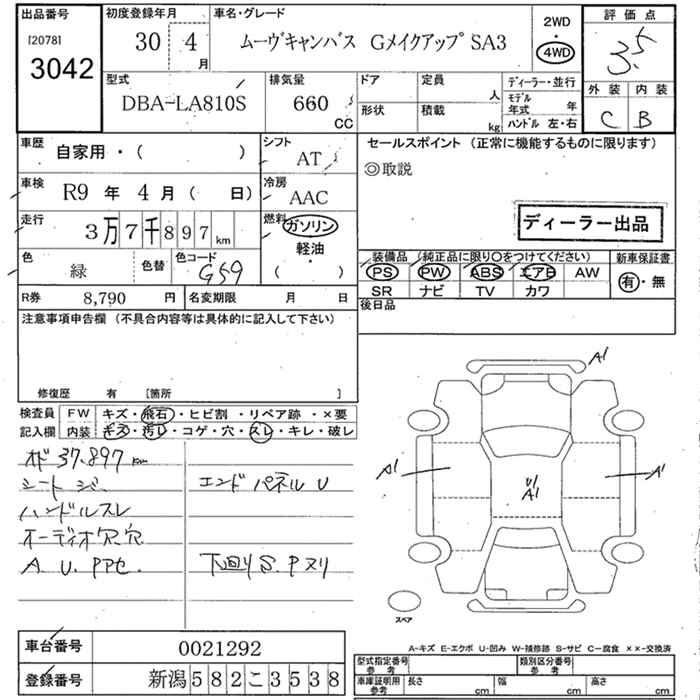 出品番号
[2078]
3042
初度登録年月
30 4月
車名・グレード
ムーヴキャンバス GメイクアップSA3
2WD
・
4WD
評価点
3.5
外装 内装
C B
型式
DBA-LA810S
排気量
660 cc
ドア 定員 人
形状 積載 kg
ディーラー・並行
モデル年式 年
ハンドル 左・右
車歴
自家用・( )
シフト
AT
車検
R9年 4月( 日)
冷房
AAC
走行
3万7千897km
燃料
ガソリン・
軽油・
( )
色
緑
色替
色コード
G59
R券 8,790円
名変期限 月 日
セールスポイント(正常に機能するものに限ります)
◎取説
ディーラー出品
装備品(純正品に限り○をつけてください)
PS PW ABS エアB AW
SR ナビ TV カワ
新車保証書
有・無
後日品
注意事項申告欄(不具合内容等は具体的に記入して下さい)
修復歴 有 [箇所 ]
検査員記入欄
FW キズ・飛石・ヒビ割・リペア跡・×要
内装 キズ・汚レ・コゲ・穴・スレ・キレ・破レ
オド 37.897km
シートシミ
エンドパネルU
ハンドルスレ
オーディオ穴.穴
A.U.PPセ.
下回りS.Pヌリ
A1
A1
U1
A1
A1
スペア
A-キズ E-エクボ U-凹み W-補修跡 S-サビ C-腐食 ××-交換済
車台番号 0021292
登録番号 新潟582こ3538
型式指定番号 参考
類別区分番号 参考
車庫証明用 参考
長さ cm
幅 cm
高さ cm